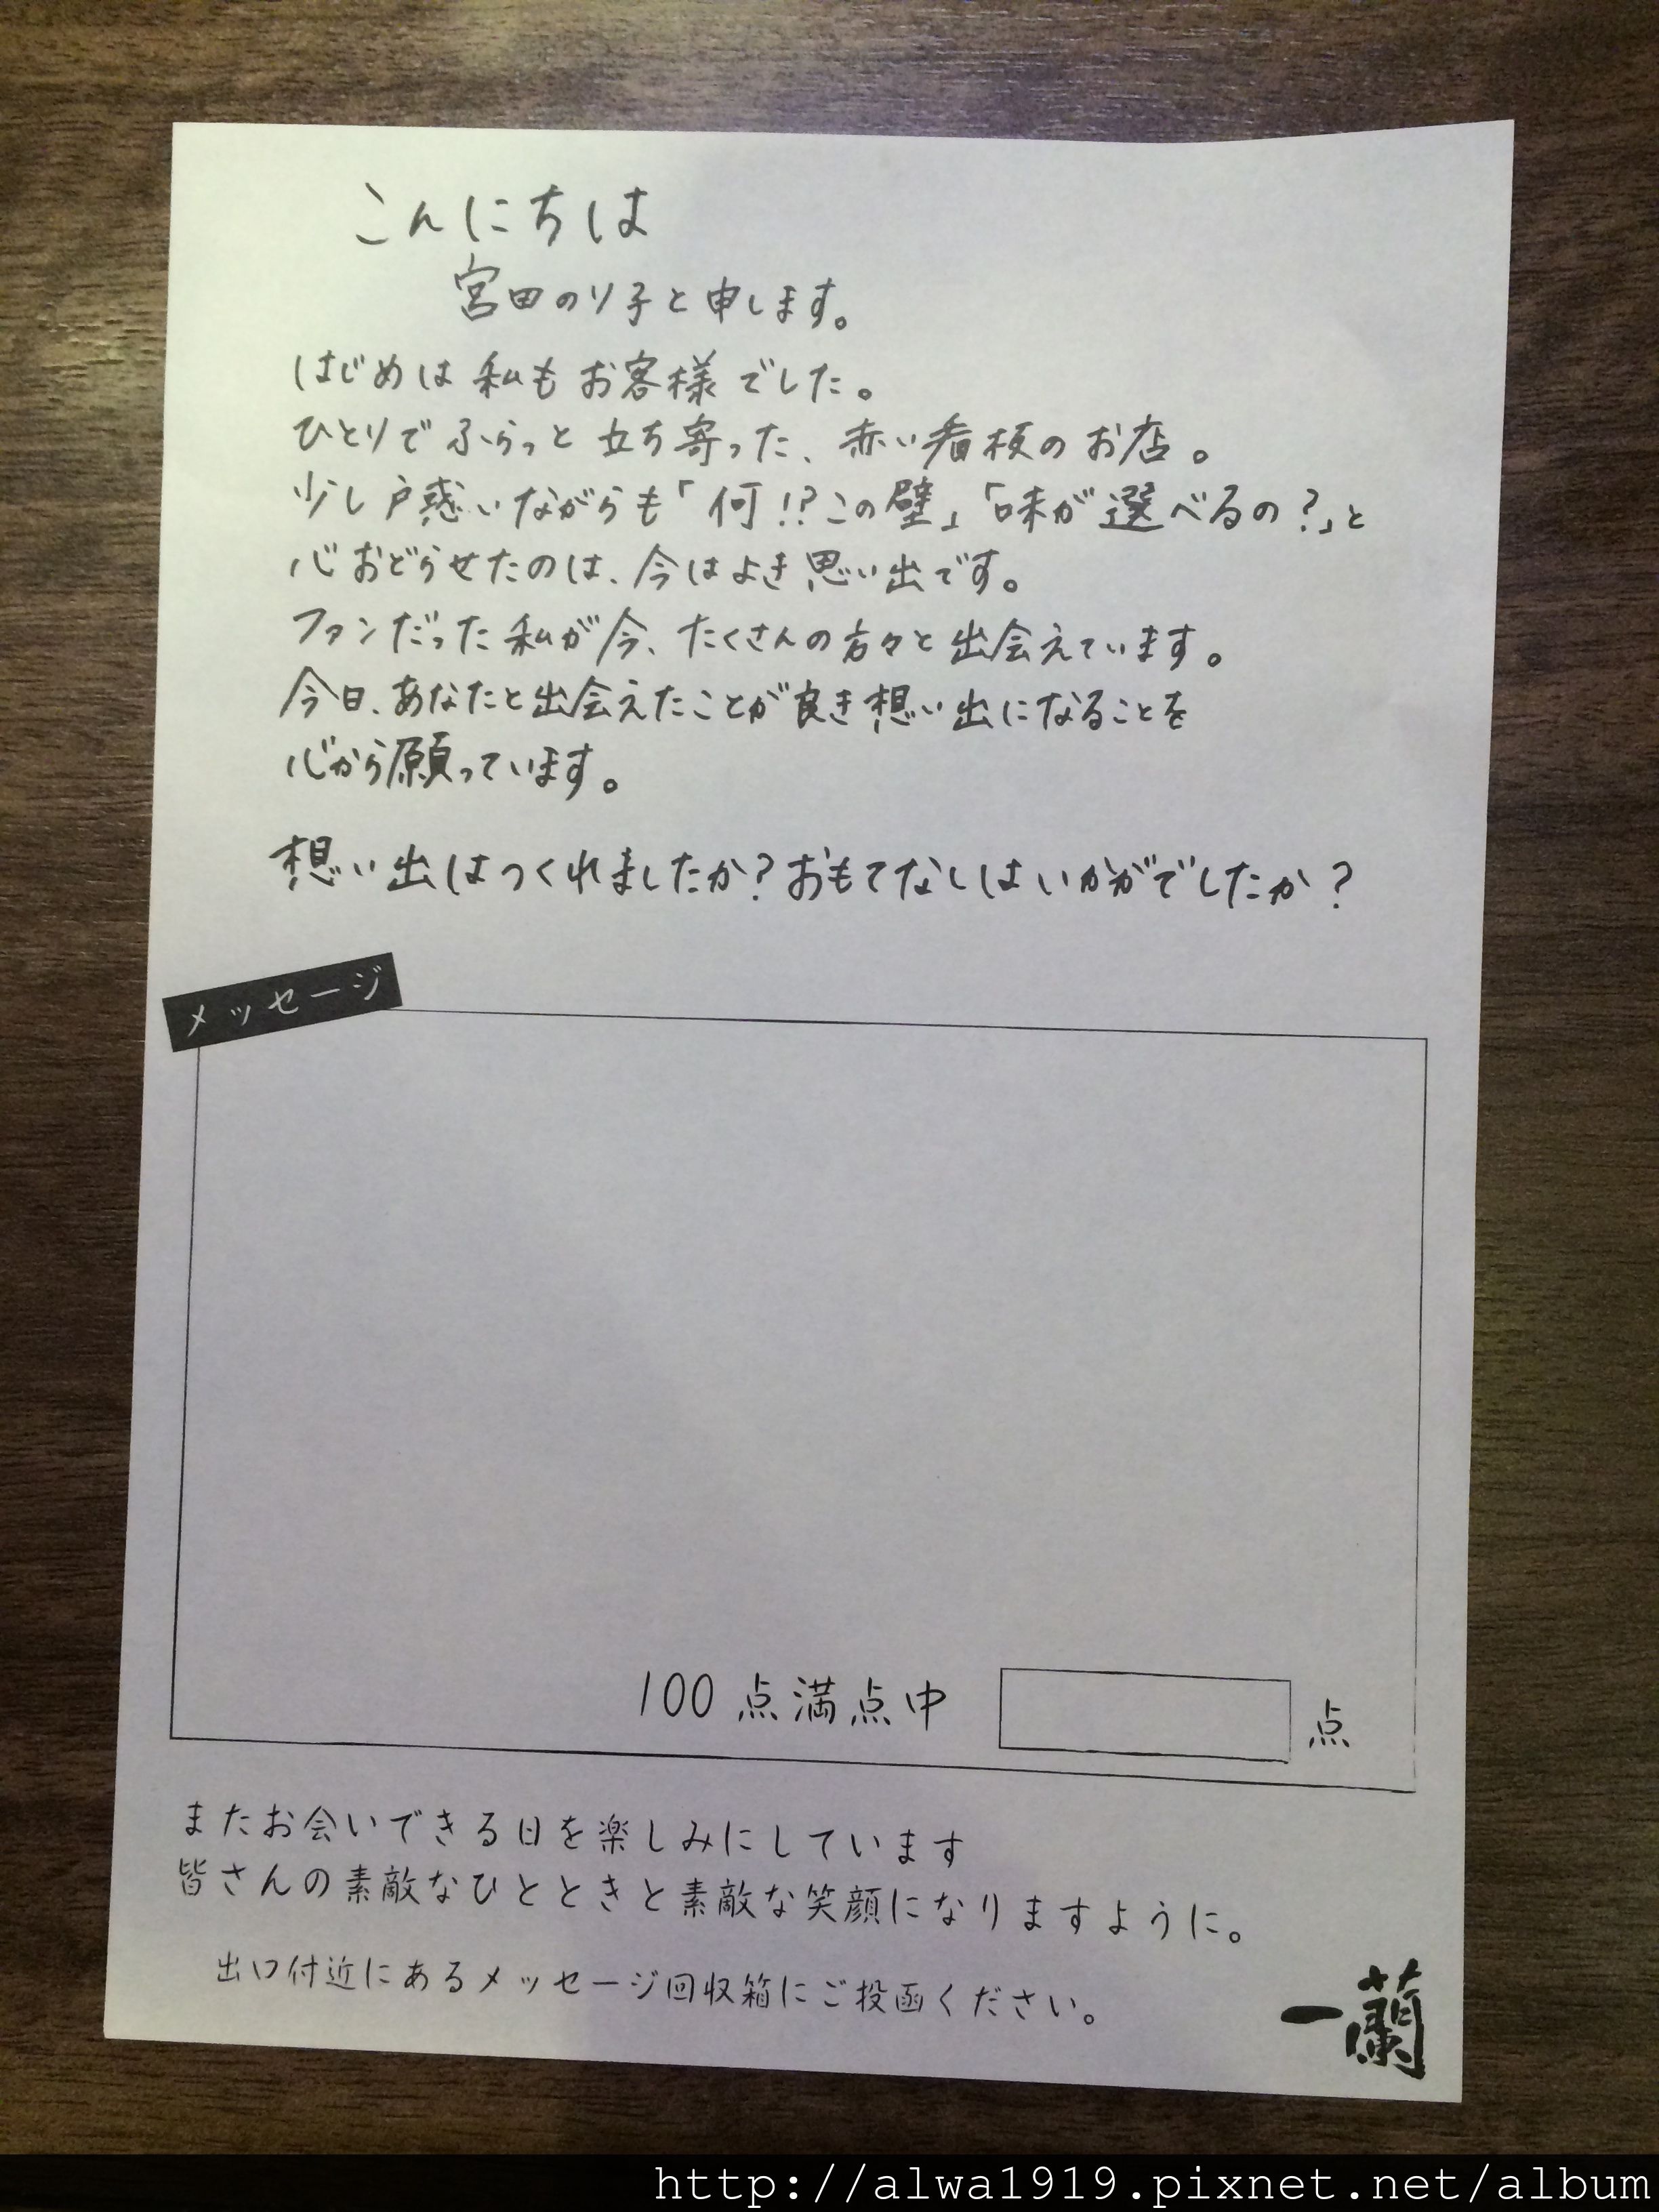 こんにちは
宮田のり子と申します。
はじめは私もお客様でした。
ひとりでふらっと立ち寄った、赤い看板のお店。
少し戸惑いながらも「何!?この壁」「味が選べるの?」と
心おどらせたのは、今はよき思い出です。
ファンだった私が今、たくさんの方々と出会えています。
今日、あなたと出会えたことが良き想い出になることを
心から願っています。
想い出はつくれましたか?おもてなしはいかがでしたか?
メッセージ
100点満点中 点
またお会いできる日を楽しみにしています
皆さんの素敵なひとときと素敵な笑顔になりますように。
出口付近にあるメッセージ回収箱にご投函ください。
一蘭
http://alwa1919.pixnet.net/album